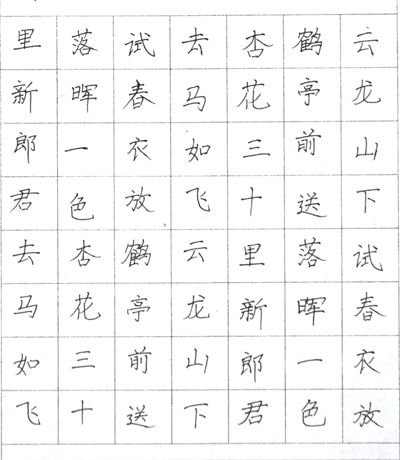 云龙山下试春衣放
鹤亭前送落晖一色
杏花三十里新郎君
去马如飞云龙山下
试春衣放鹤亭前送
落晖一色杏花三十
里新郎君去马如飞